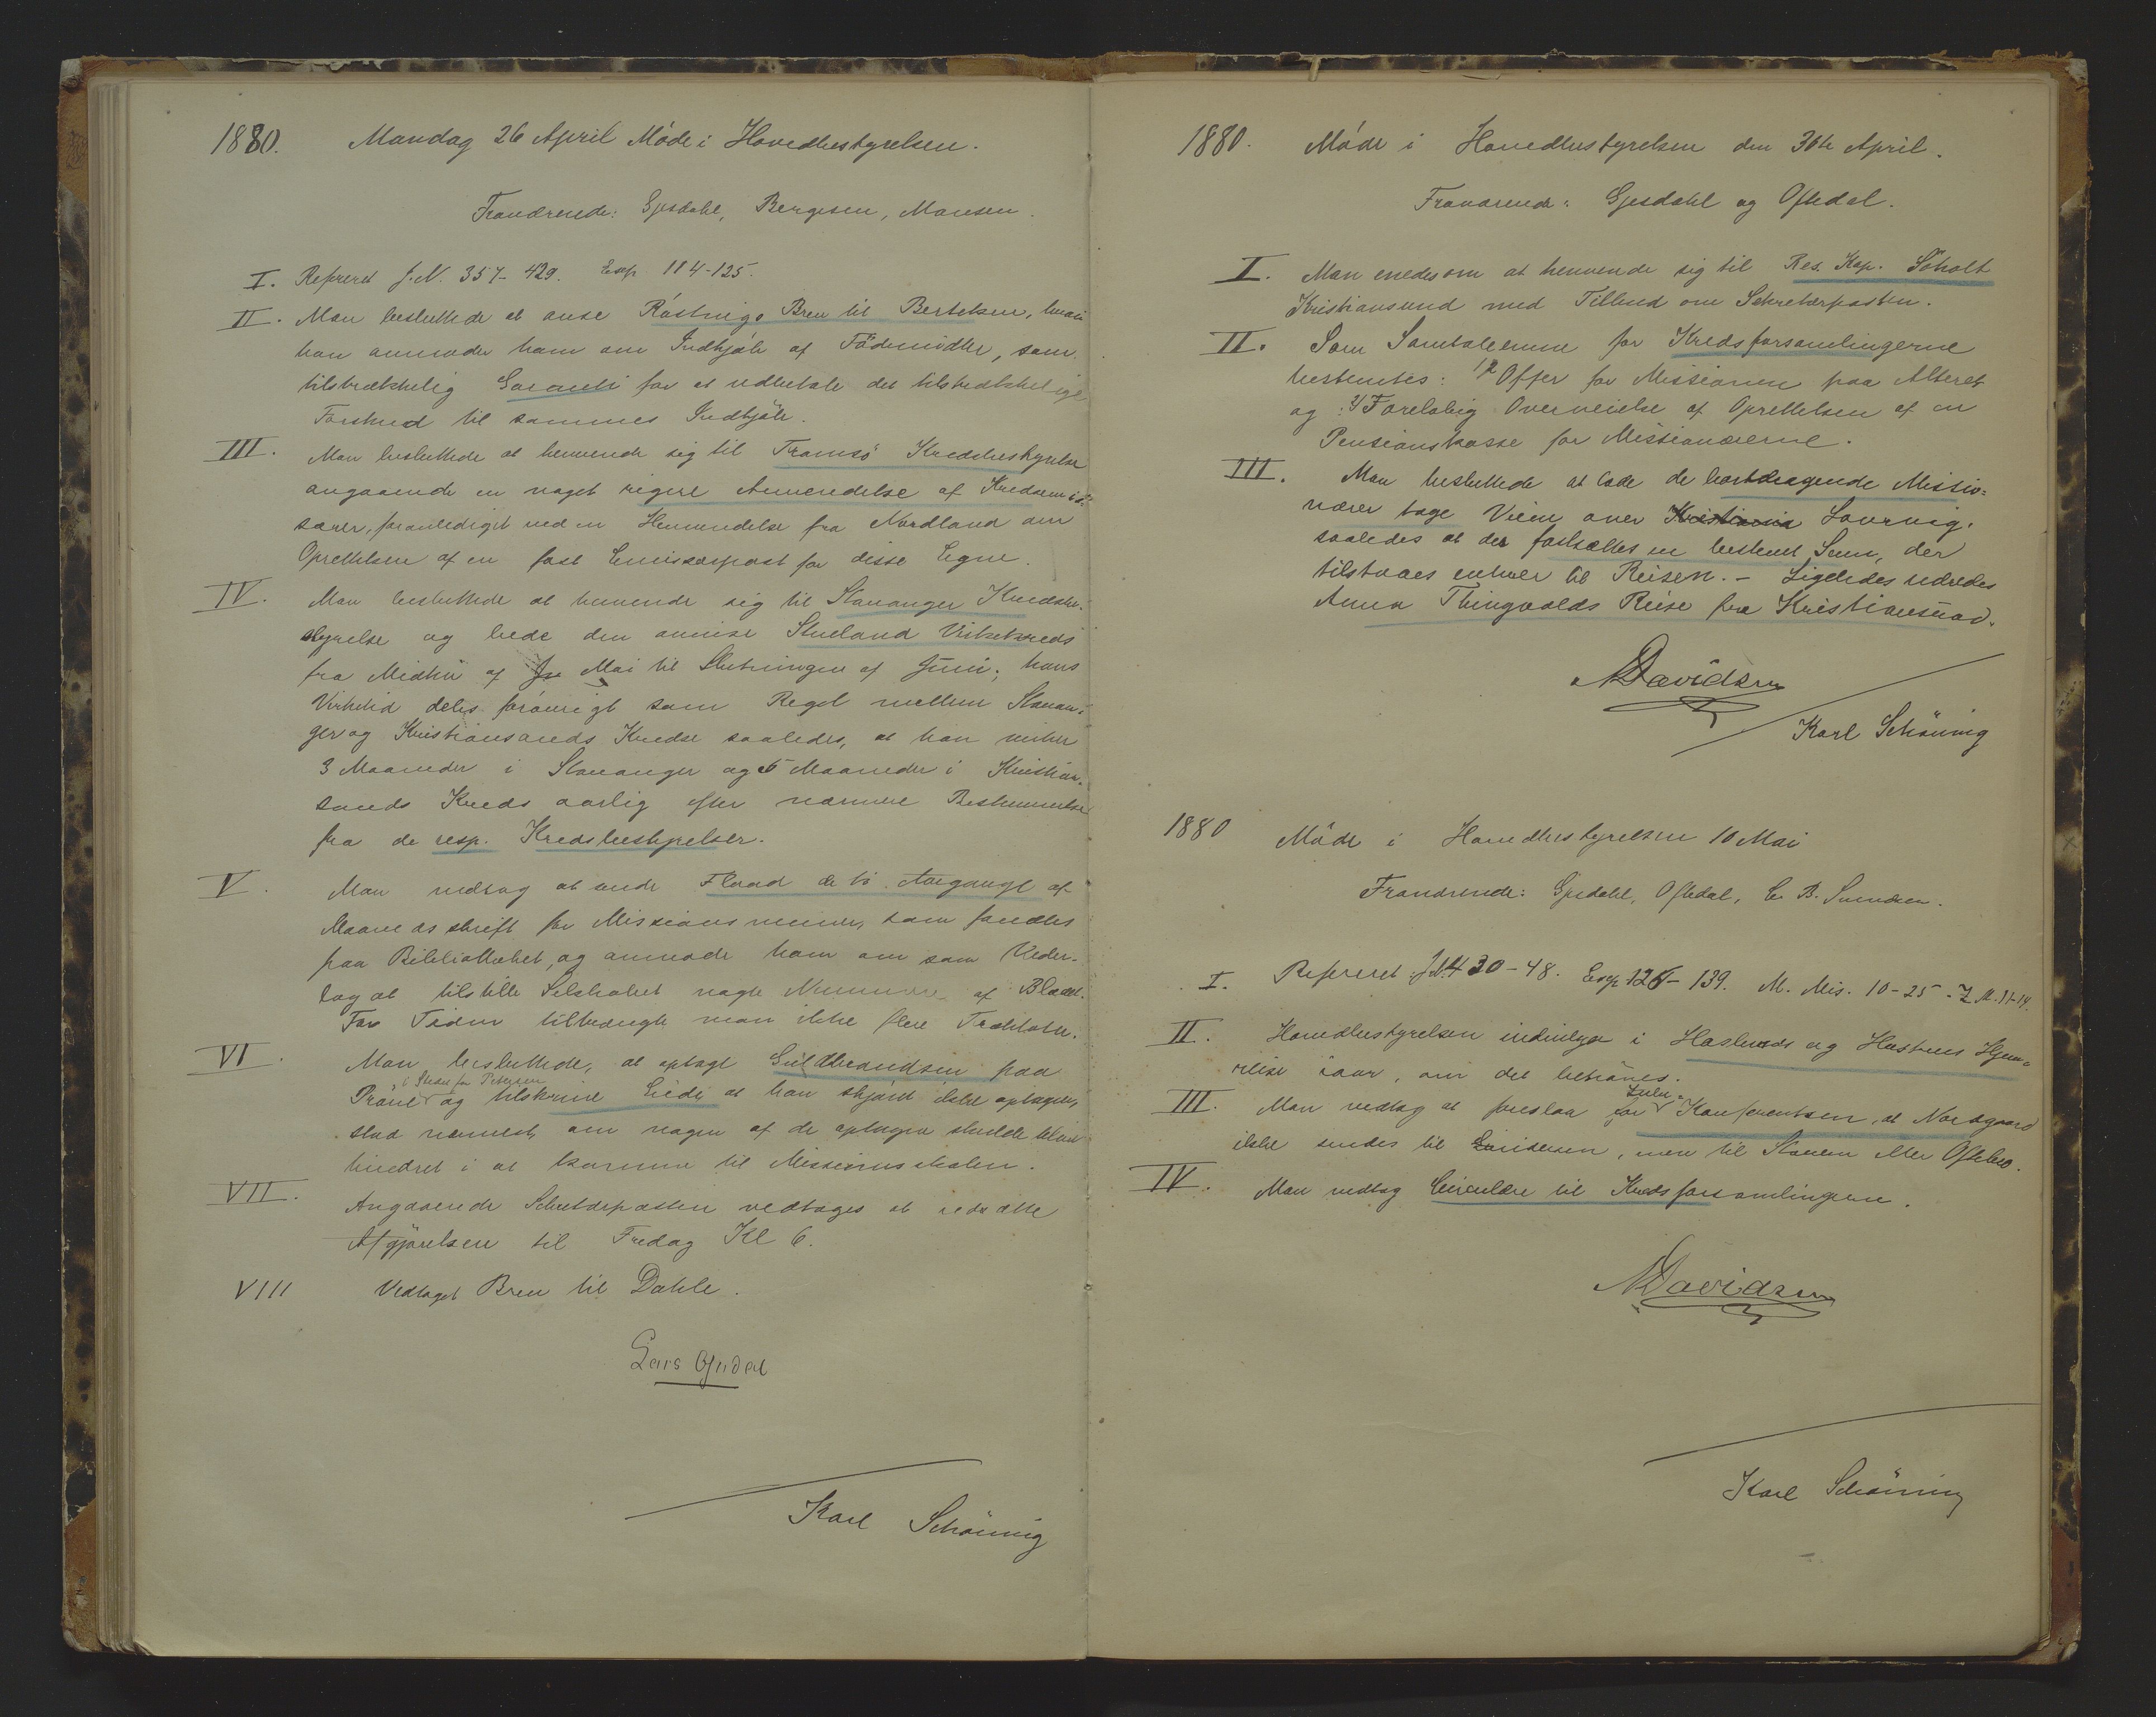 1880. Mandag 26 April Möde i Hovedbestyrelsen.
Fraværende: Gjesdahl, Bergesen, Monsen.
I. Refereret J.N. 357-429. Exp. 114-125.
II. Man besluttede at anse Röstvigs Brev til Bertelsen, hvori
han anmoder ham om Indkjöb af Födemidler, som
tilstrækkelig Garanti for at udbetale det tilstrækkelige
Forskud til sammes Indkjöb.
III. Man besluttede at henvende sig til Tromsö Kredsbestyrelse
angaaende en noget rigere Anvendelse af Kredsemis-
særer, foranlediget ved en Henvendelse fra Nordland om
Oprettelsen af en fast Emissærpost for disse Egne.
IV. Man besluttede at henvende sig til Stavanger Kredsbe-
styrelse og bede den anvise Stueland Virkekreds
fra Midten af Mai til Slutningen af Juni; hans
Virketid deles forövrigt som Regel mellem Stavan-
ger og Kristiansands Kredse saaledes, at han virker
3 Maaneder i Stavanger og 5 Maaneder i Kristian-
sands Kreds aarlig efter nærmere Bestemmelse
fra de resp. Kredsbestyrelser.
V. Man vedtog at sende Flaad de to Aargange af
Maanedsskrift for Missionsvenner, som fandtes
paa Bibliotheket, og anmode ham om som Veder-
lag at tilstille Selskabet nogle Numere af Bladet.
For Tiden tiltrængte man ikke flere Traktater.
VI. Man besluttede, at optage Guldbrandsen paa
i Stedet for Petersen
Pröve og tilskrive Eide at han skjönt ikke optagen,
stod nærmest, om nogen af de optagne skulde blive
hindret i at komme til Missionsskolen.
VII. Angaaende Sekretærposten vedtoges at udsætte
Afgjörelsen til Fredag Kl 6.
VIII Vedtaget Brev til Dahle.
Lars Oftedal
Karl Schöning
1880. Möde i Hovedbestyrelsen den 30te April.
Fraværende: Gjesdahl og Oftedal.
I. Man enedes om at henvende sig til Res. Kap. Söholt
Kristiansund med Tilbud om Sekretærposten.
II. Som Samtaleemne for Kredsforsamlingerne
bestemtes: 1) Offer for Missionen paa Alteret
og: 2) Foreløbig Overveielse af Oprettelsen af en
Pensionskasse for Missionærerne.
III. Man besluttede at lade de bortdragende Missio-
nærer tage Veien over Kristiania Laurvig.
saaledes at der fastsættes en bestemt Sum, der
tilstaaes enhver til Reisen. - Ligeledes udredes
Anna Thingvolds Reise fra Kristiansund.
Davidsen
Karl Schöning
1880 Möde i Hovedbestyrelsen 10 Mai
Fraværende: Gjesdahl, Oftedal, C. B. Svendsen.
I. Refereret: J.N. 430-48. Exp. 126-139. M. Mis. 10-25. Z. M. 11-14.
II. Hovedbestyrelsen indvilger i Haslunds og Hustrus Hjem-
reise iaar, om det behöves.
Zulu
III. Man vedtog at foreslaa for Konferentsen, at Norsgaard
ikke sendes til , men til Stavem eller Oftebro.
IV. Man vedtog Cirkulære til Kredsforsamlingerne.
Davidsen
Karl Schöning